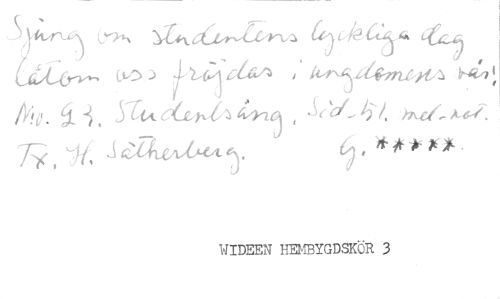 Sjung om studentens lyckliga dag
låtom oss fröjdas i ungdomens vår!
No. 93. Studentsång. Sid. 51. mel-not.
Tx. H. Sätherberg. G. *****.
WIDEEN HEMBYGDSKÖR 3